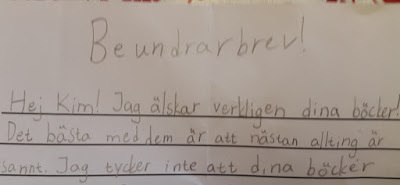 Beundrarbrev!
Hej Kim! Jag älskar verkligen dina böcker!
Det bästa med dem är att nästan allting är
sannt. Jag tycker inte att dina böcker